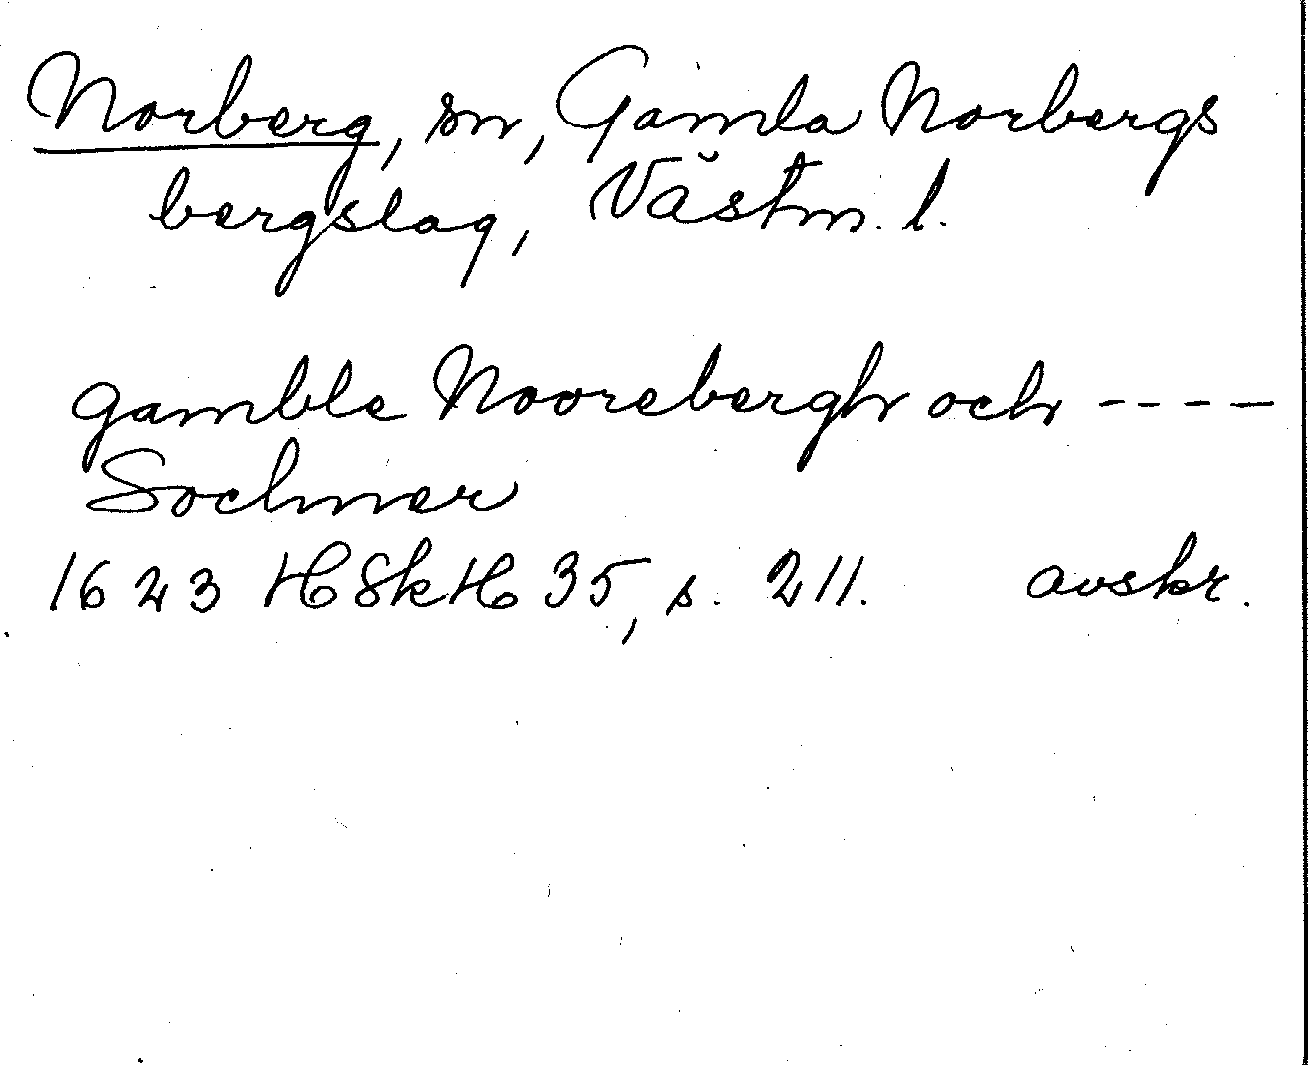 Norberg, sn, Gamla Norbergs
bergslag, Västm. l.
gamble Noorebergh och ----
Sochner
1623 HSkH 35, s. 211. avskr.